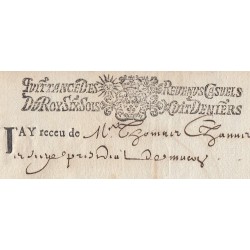 QUITTANCE DES REVENUS CASUELS
DU ROY SIX SOLS HUIT DENIERS
J'AY receu de Mre Thomier Channier
presidial de macon